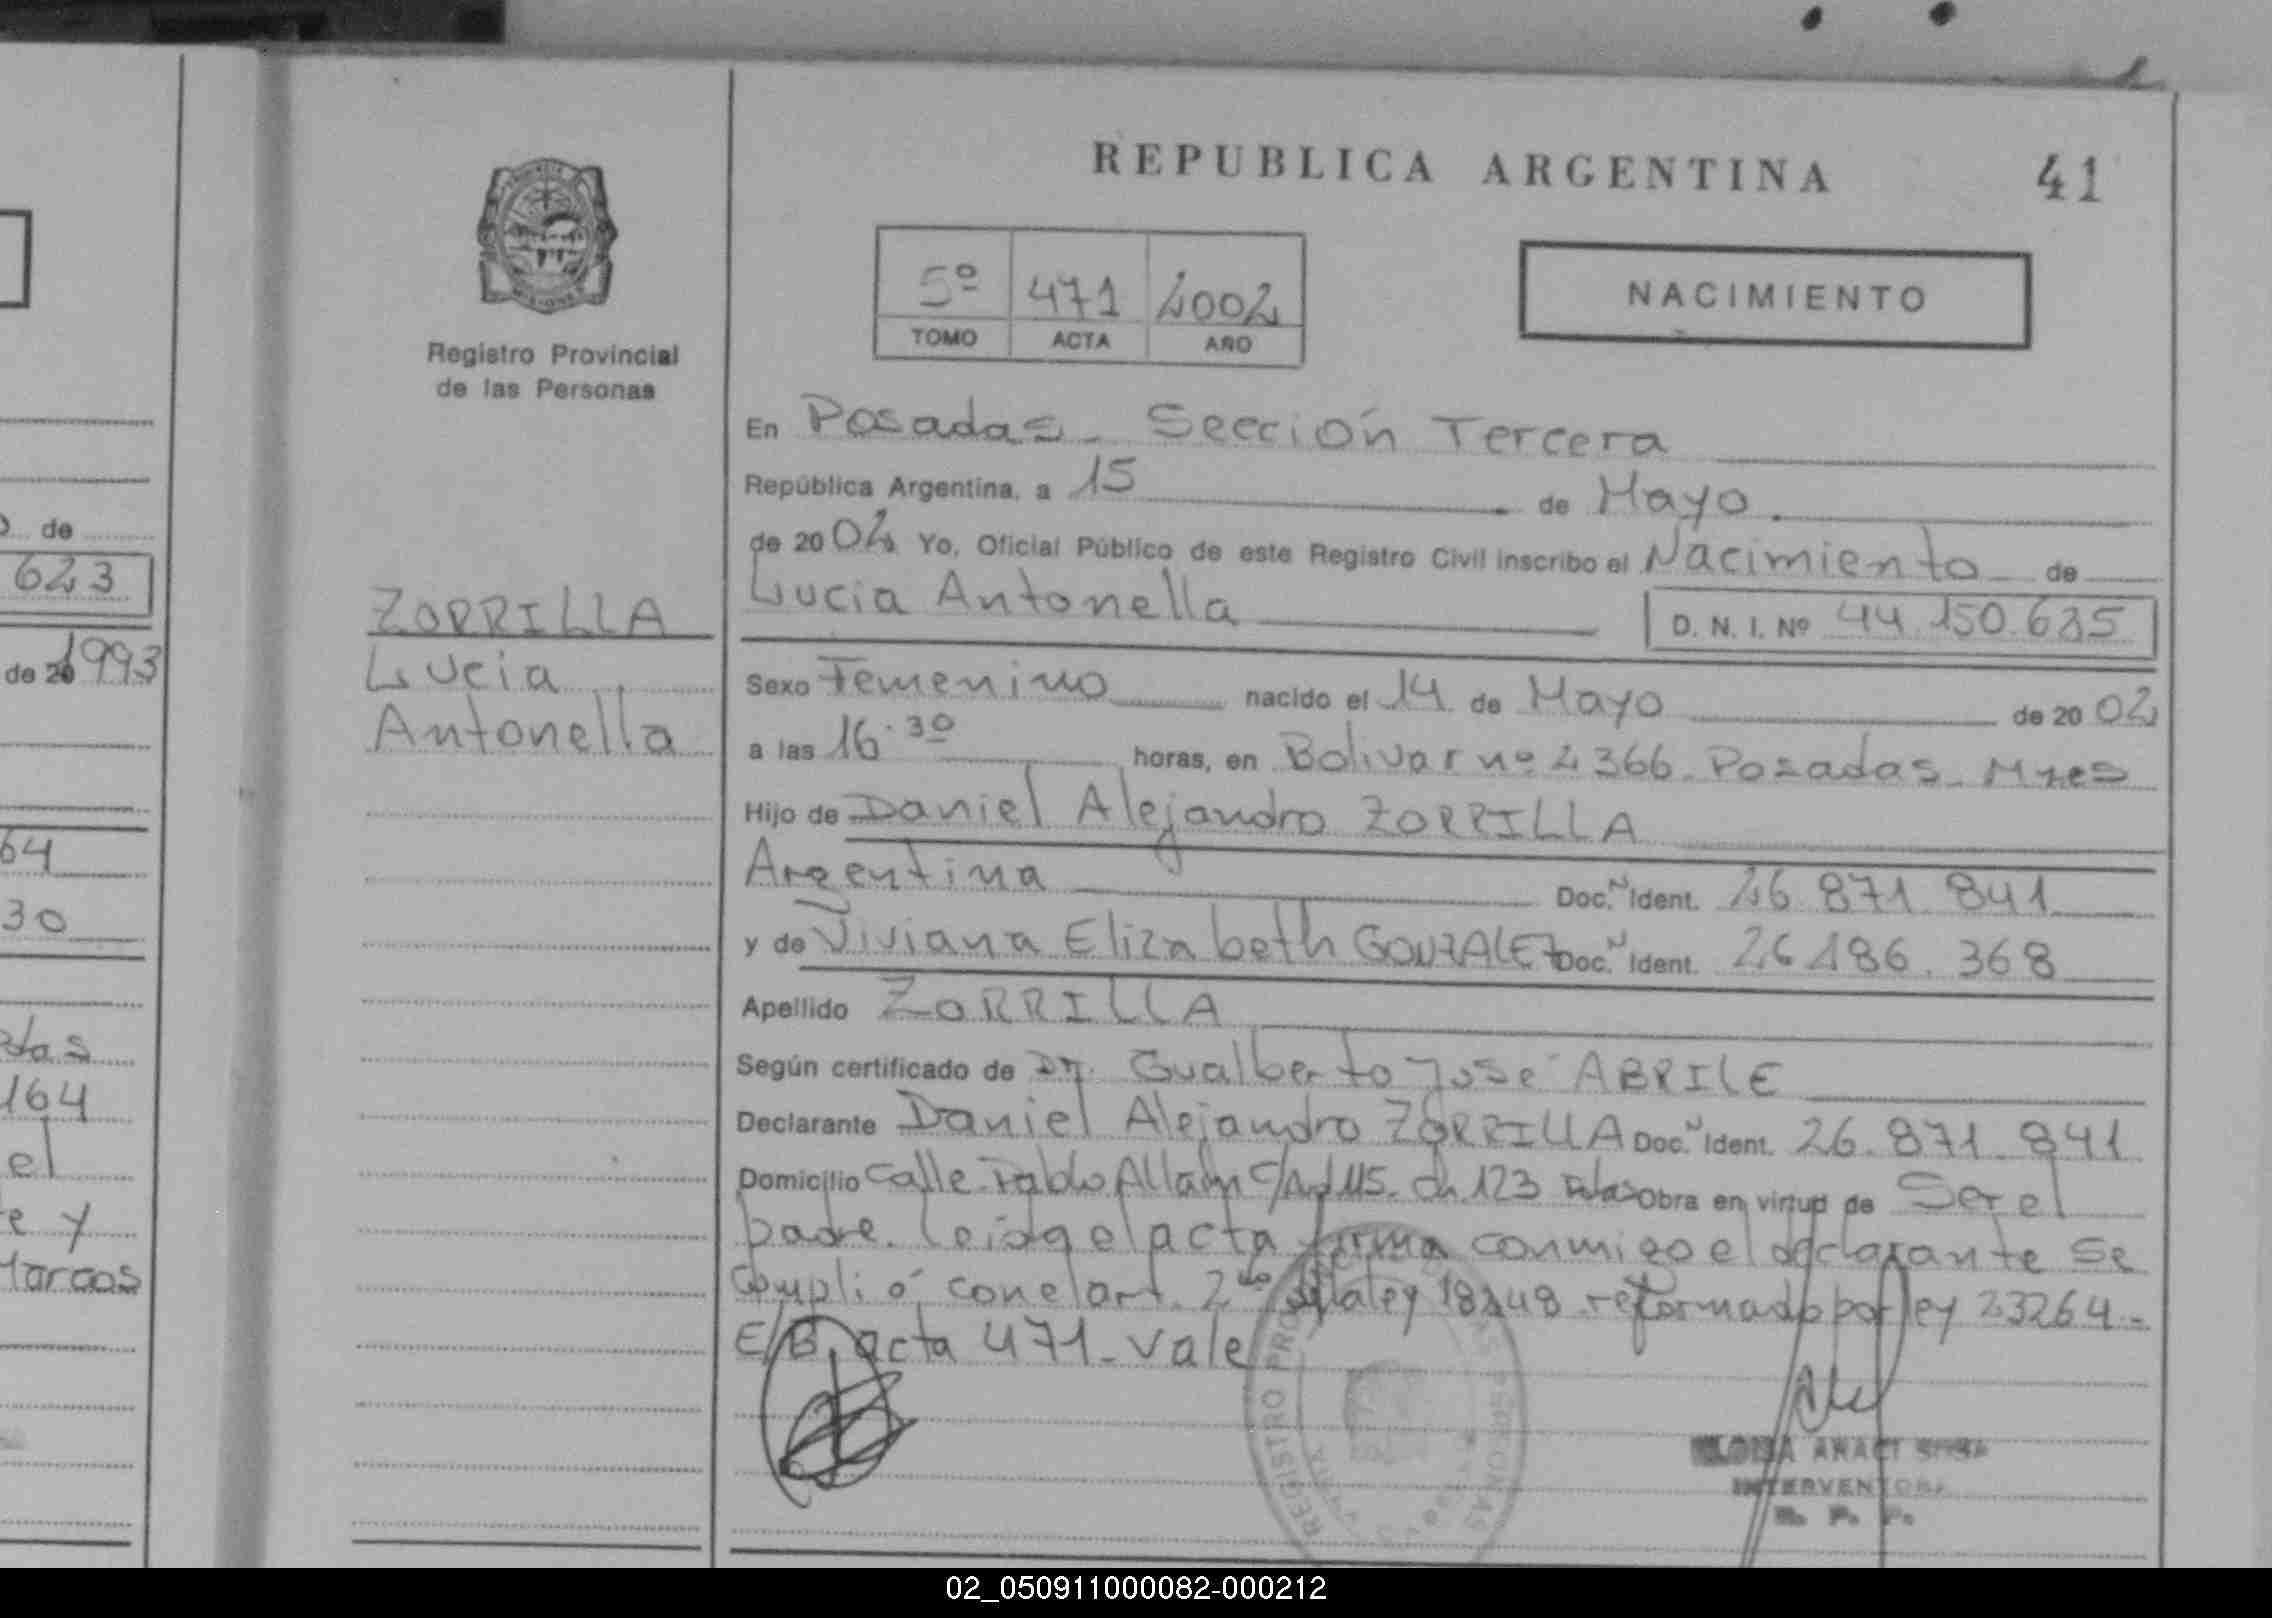 REPUBLICA ARGENTINA
41
5º 471 2002
TOMO ACTA AÑO
NACIMIENTO
Registro Provincial
de las Personas
En Posadas - Sección Tercera
República Argentina, a 15 de Mayo
de 2002 Yo, Oficial Público de este Registro Civil inscribo el Nacimiento de
Lucia Antonella D. N. I. Nº 44.150.635
ZORRILLA
Lucia
Antonella
Sexo Femenino nacido el 14 de Mayo de 2002
a las 16.30 horas, en Bolivar nº 2366 - Posadas - Mnes
Hijo de Daniel Alejandro ZORRILLA
Argentina Doc. N Ident. 26.871.841
y de Viviana Elizabeth GONZALEZ Doc. N Ident. 26.186.368
Apellido ZORRILLA
Según certificado de Dr. Gualberto José ABRILE
Declarante Daniel Alejandro ZORRILLA Doc. N Ident. 26.871.841
Domicilio Calle Pablo Allain Ch 123 Pdas Obra en virtud de Ser el
padre. Leida el acta firma conmigo el declarante Se
cumplió con el art. 2do de la ley 18248 reformado por ley 23264.-
E/B. acta 471 - Vale
REGISTRO
ARACI SOSA
INTERVENTORA
R. P. P.
623
de
de 20 1993
64
30
das
164
el
e y
Marcos
02_050911000082-000212